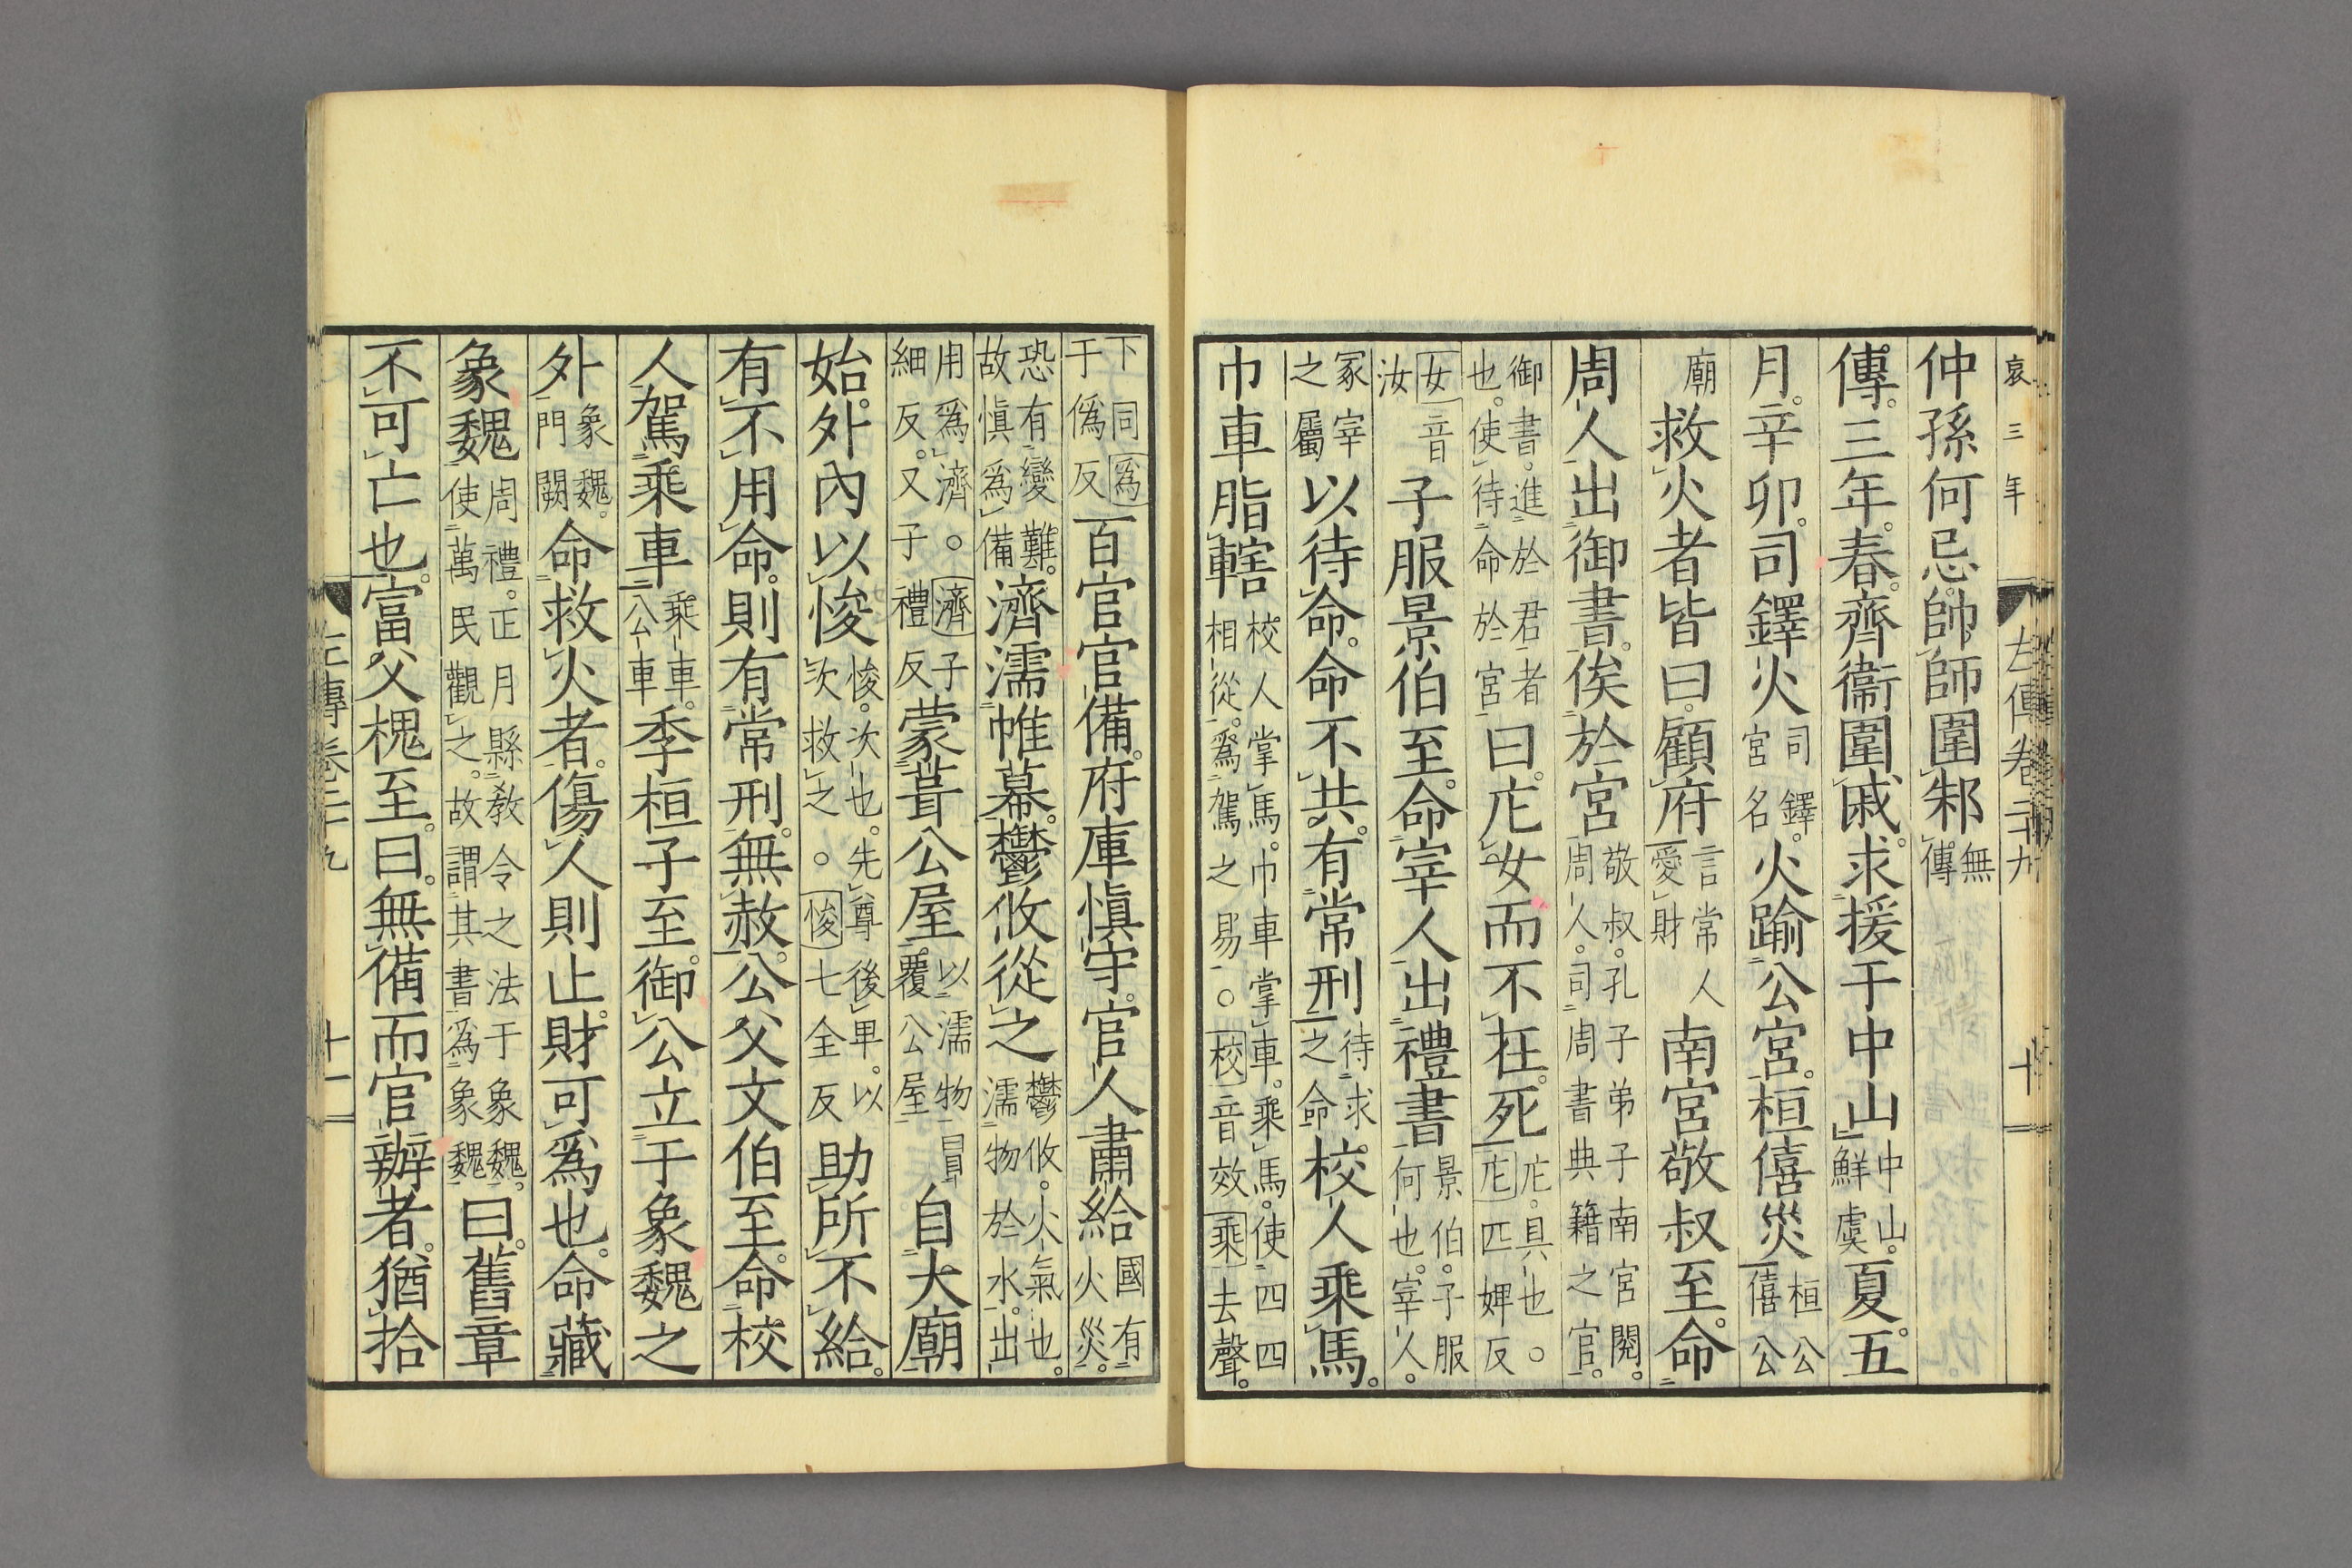 哀三年 左傳卷二十九 十
仲孫何忌。帥師圍邾。無傳。
傳。三年。春。齊衞圍戚。求援于中山。中山。鮮虞。夏。五
月。辛卯。司鐸火。司鐸。宮名。火踰公宮。桓僖災。桓公僖公
廟救火者皆曰。顧府。言常人愛財南宮敬叔至。命
周人出御書。俟於宮。敬叔。孔子弟子南宮閱。周人。司周書典籍之官。
御書。進於君者也。使待命於宮曰。庀女而不在。死。庀。具也。○庀匹婢反
女音汝子服景伯至。命宰人出禮書。景伯。子服何也。宰人。
冢宰之屬以待命。命不共。有常刑。待求之命校人乘馬。
巾車脂轄校人掌馬。巾車掌車。乘馬。使四四相從。爲駕之易。○校音效乘去聲。
下同爲于僞反百官官備。府庫愼守。官人肅給國有火災。
恐有變難。故愼爲備濟濡帷幕。鬱攸從之鬱攸。火氣也。濡物於水。出
用爲濟。○濟子細反。又子禮反蒙葺公屋。以濡物冒覆公屋自大廟
始。外內以悛悛。次也。先尊後卑。以次救之。○悛七全反助所不給。
有不用命。則有常刑。無赦。公父文伯至。命校
人駕乘車乘車。公車季桓子至。御公立于象魏之
外象魏。門闕命救火者。傷人則止。財可爲也。命藏
象魏周禮。正月縣敎令之法于象魏。使萬民觀之。故謂其書爲象魏曰。舊章
不可亡也。富父槐至。曰。無備而官辦者。猶拾
左傳卷二十九 十一